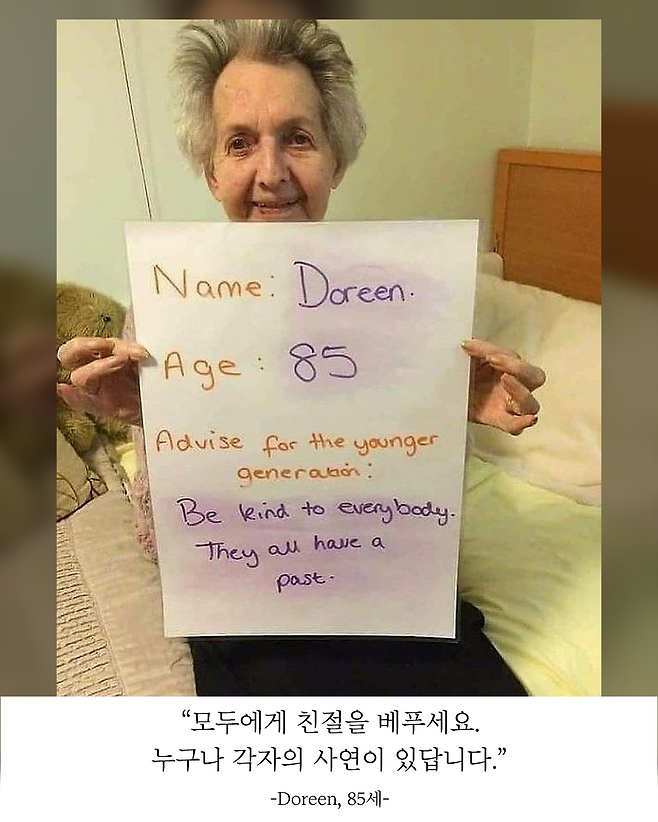 Name: Doreen.
Age: 85
Advise for the younger
generation:
Be kind to everybody.
They all have a
past.
“모두에게 친절을 베푸세요.
누구나 각자의 사연이 있답니다.”
-Doreen, 85세-